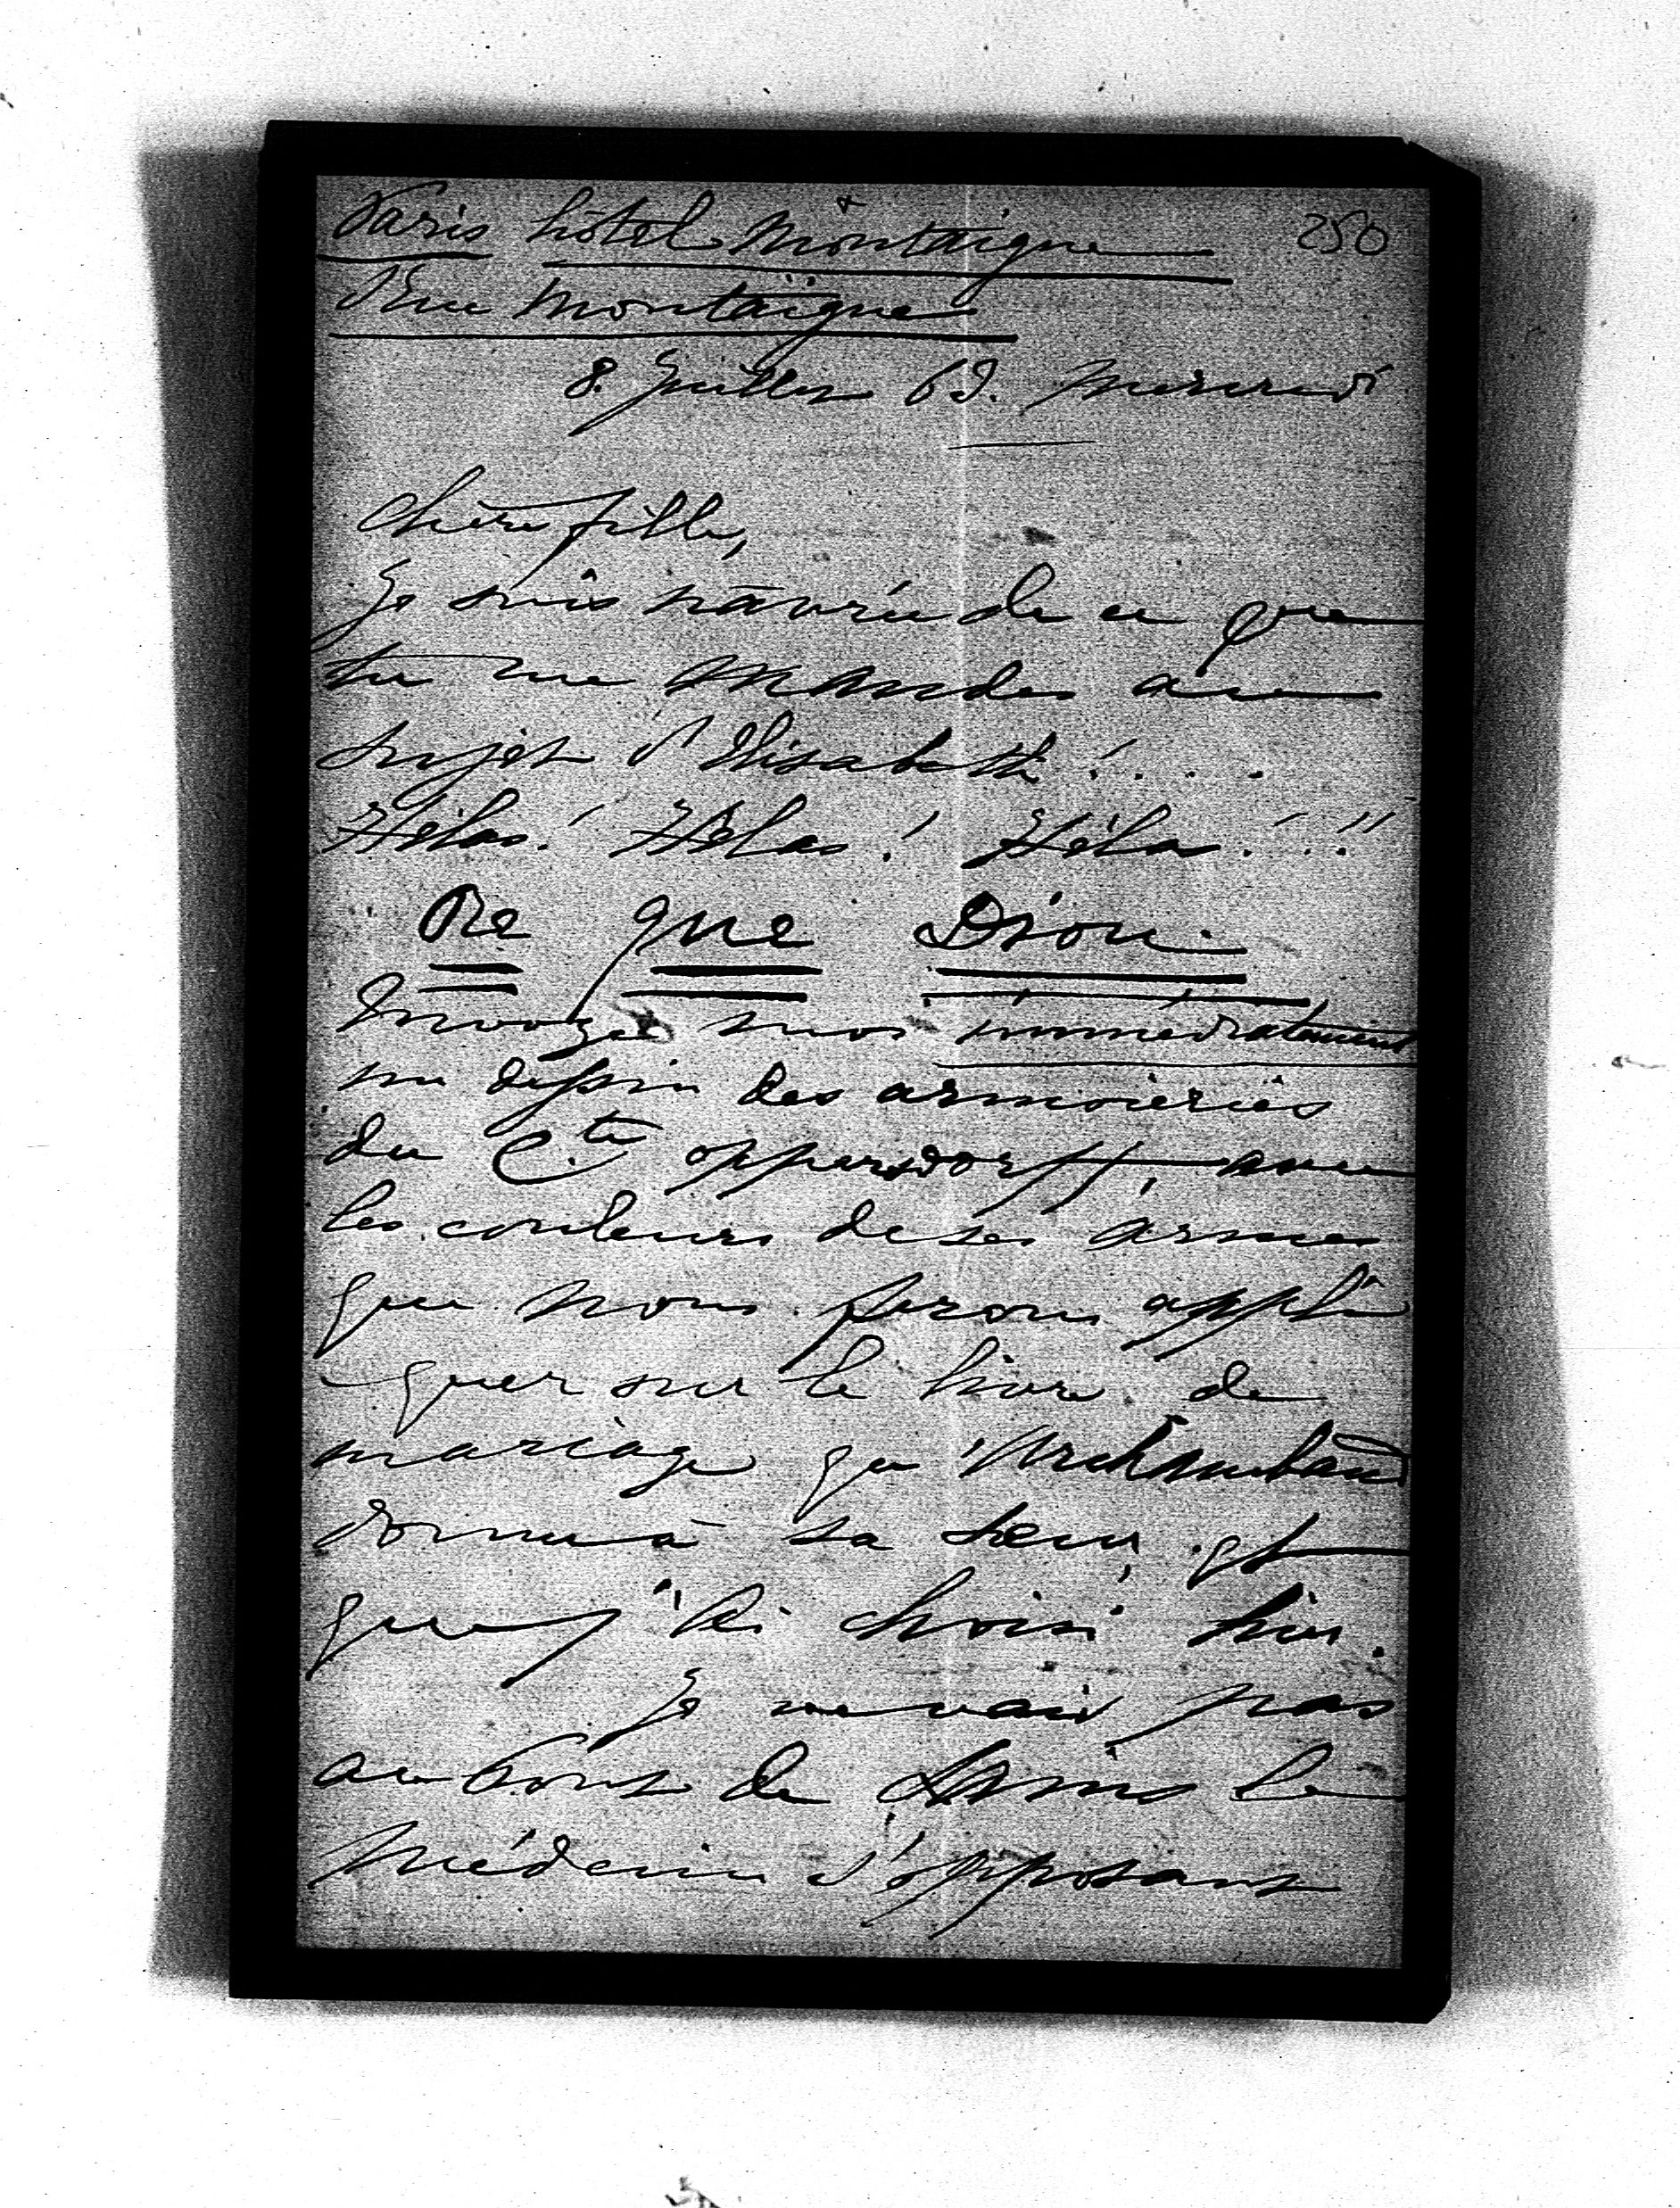 Paris hôtel Montaigne 250
Rue Montaigne
8. Juillet 63. Mercredi
Chère fille,
Je suis navrée de ce que
tu me mandes au
sujet d'Elisabeth! . . . .
Hélas! Hélas! Hélas!!!
que
Envoyez moi immédiatement
un dessin des armoieries
du Cte Oppersdorff, avec
les couleurs de ses armes
que nous ferons appli
-quer sur le livre de
mariage qu'Archambaud
donne à sa sœur et
que j'ai choisi hier.
Je ne vais pas
au Pont de le
Médecin s'opposant